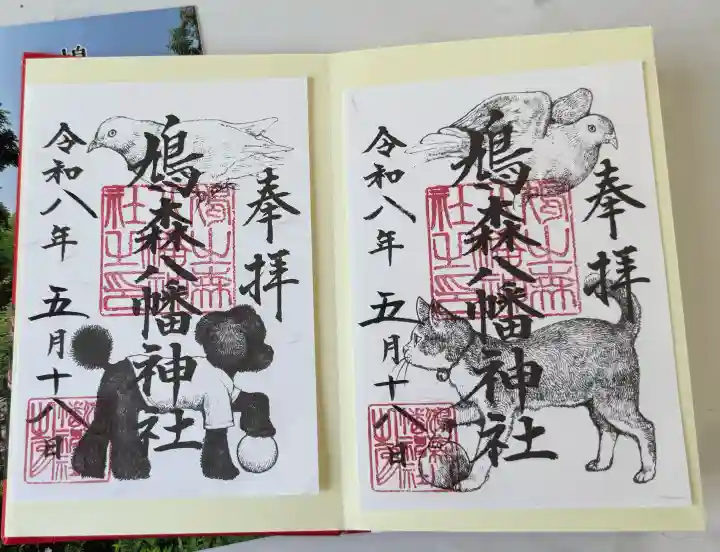 奉拝
鳩森八幡神社
令和八年 五月十八日
奉拝
鳩森八幡神社
令和八年 五月十八日
鳩